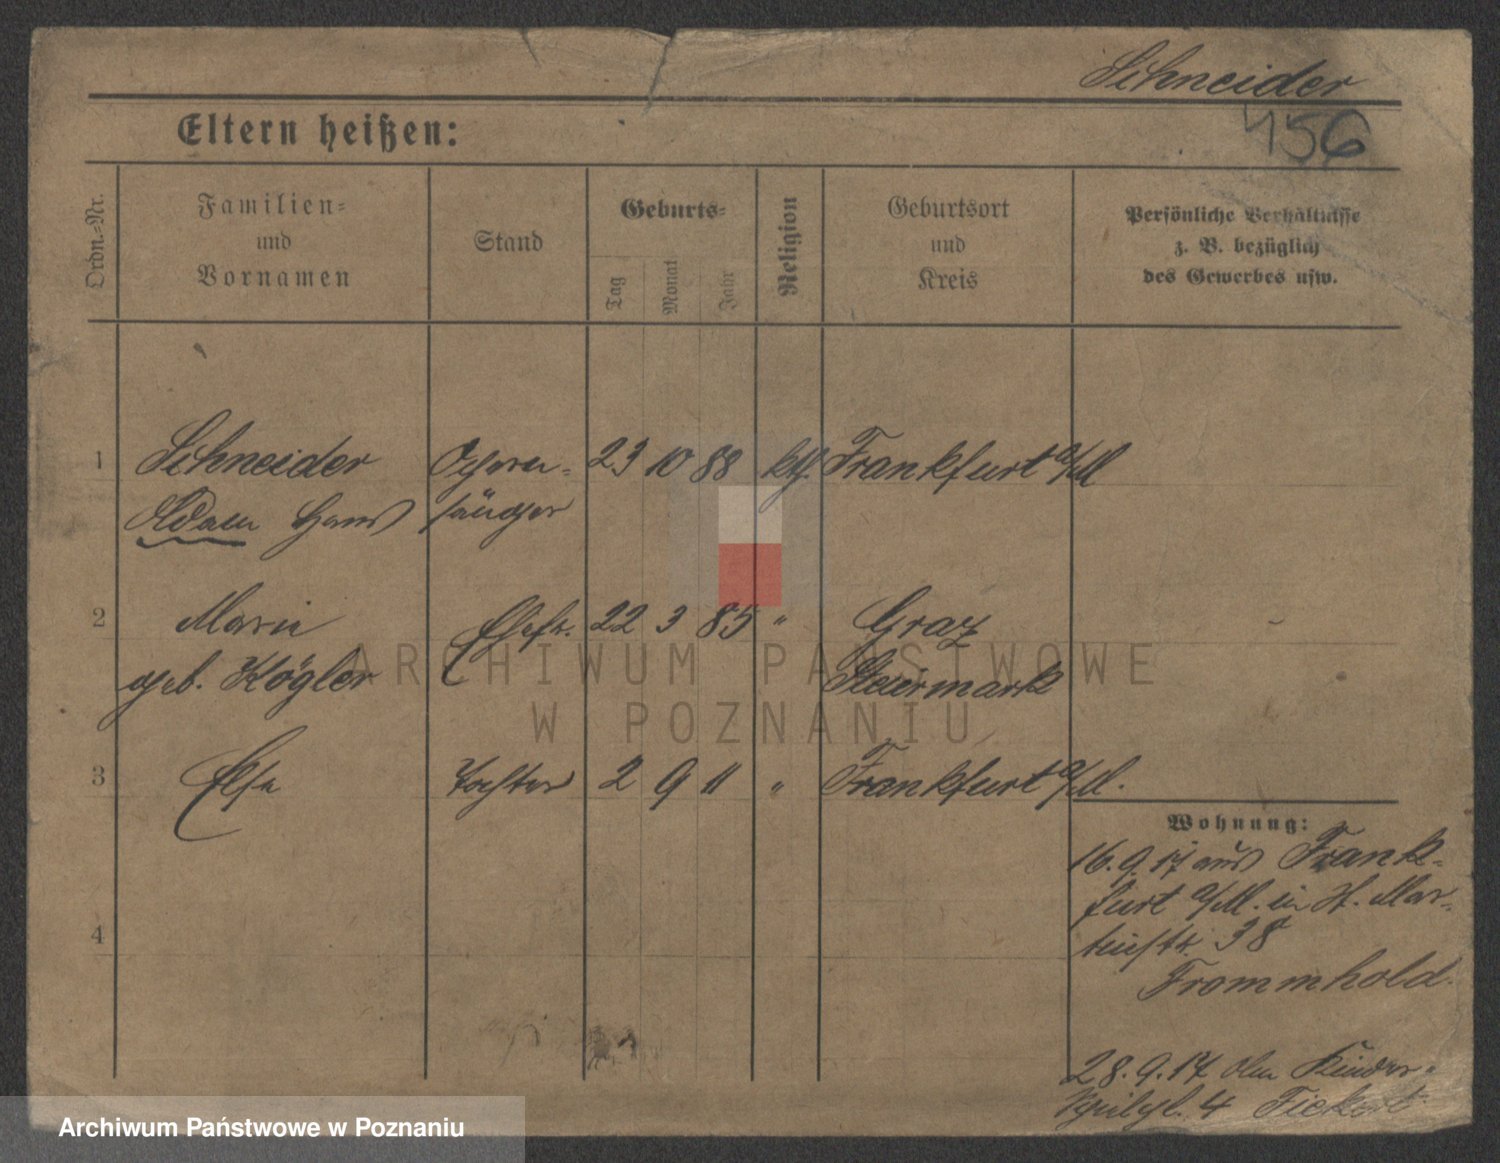 Schneider
456
Eltern heißen:
Ordn.-Nr.
Familien=
und
Vornamen
Stand
Geburts=
Tag
Monat
Jahr
Religion
Geburtsort
und
Kreis
Persönliche Verhältnisse
z. B. bezüglich
des Gewerbes usw.
1 Schneider Opern- 23 10 88 kth. Frankfurt a/M
Adam Hans sänger
2 Marie Ehefr. 22 3 85 " Graz
geb. Kögler Steiermark
3 Else Tochter 2 9 11 " Frankfurt a/M.
4
Wohnung:
16.9.17 aus Frank-
furt a/M. in St. Mar-
tinstr. 38
Frommhold.
28.9.17
4 Fickert
ARCHIWUM PAŃSTWOWE
W POZNANIU
Archiwum Państwowe w Poznaniu